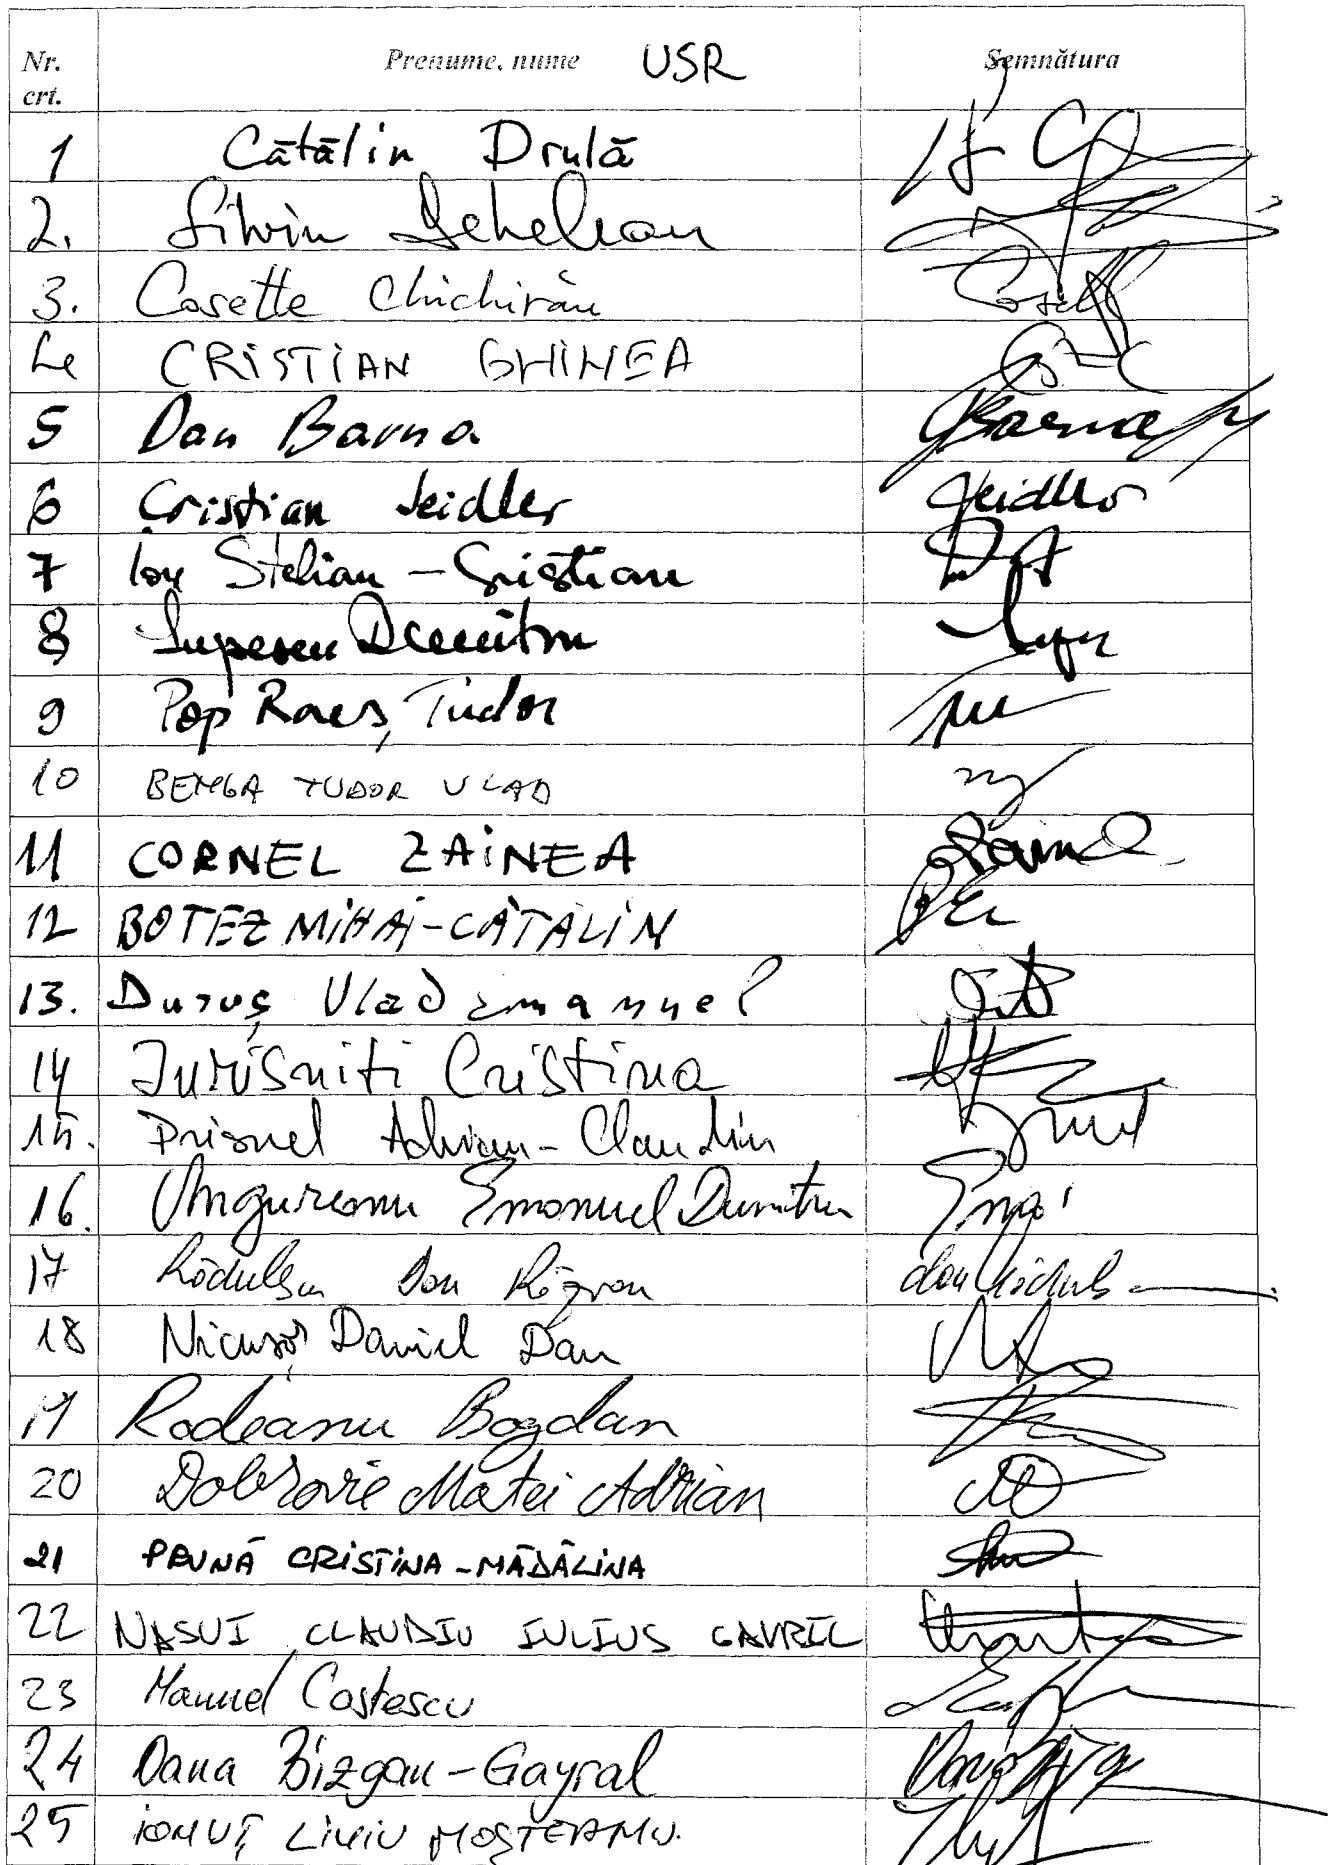 Nr. crt. Prenume, nume USR Semnătura
1 Cătălin Drulă
2. Silviu Dehelean
3. Cosette Chichirău
4 CRISTIAN GHINEA
5 Dan Barna Barna
6 Cristian Seidler Seidler
7 Ion Stelian - Cristian
8 Lupescu Dumitru
9 Pop Rareș, Tudor
10 BENGA TUDOR VLAD
11 CORNEL ZAINEA
12 BOTEZ MIHAI-CĂTĂLIN
13. Duruș Vlad Emanuel
14 Iurișniți Cristina
15. Prisnel Adrian - Claudiu
16. Ungureanu Emanuel Dumitru
17 Rădulescu Dan Răzvan
18 Nicușor Daniel Dan
19 Rodeanu Bogdan
20 Dobrovie Matei Adrian
21 PRUNĂ CRISTINA - MĂDĂLINA
22 NASUI CLAUDIU IULIUS GAVRIL
23 Manuel Costescu
24 Oana Bizgan - Gayral
25 IONUȚ LIVIU MOȘTEANU.